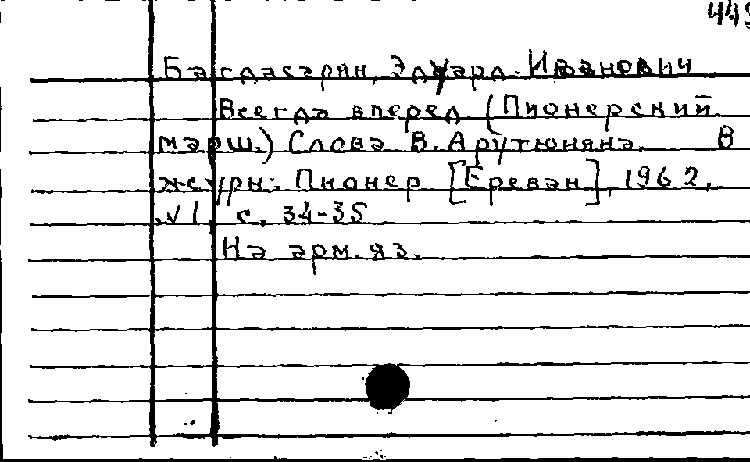 449
Багдасарян, Эдуард Иванович
Всегда вперед (Пионерский
марш.) Слова В. Арутюняна. В
журн: Пионер [Ереван], 1962,
VI, с. 34-35
На арм. яз.